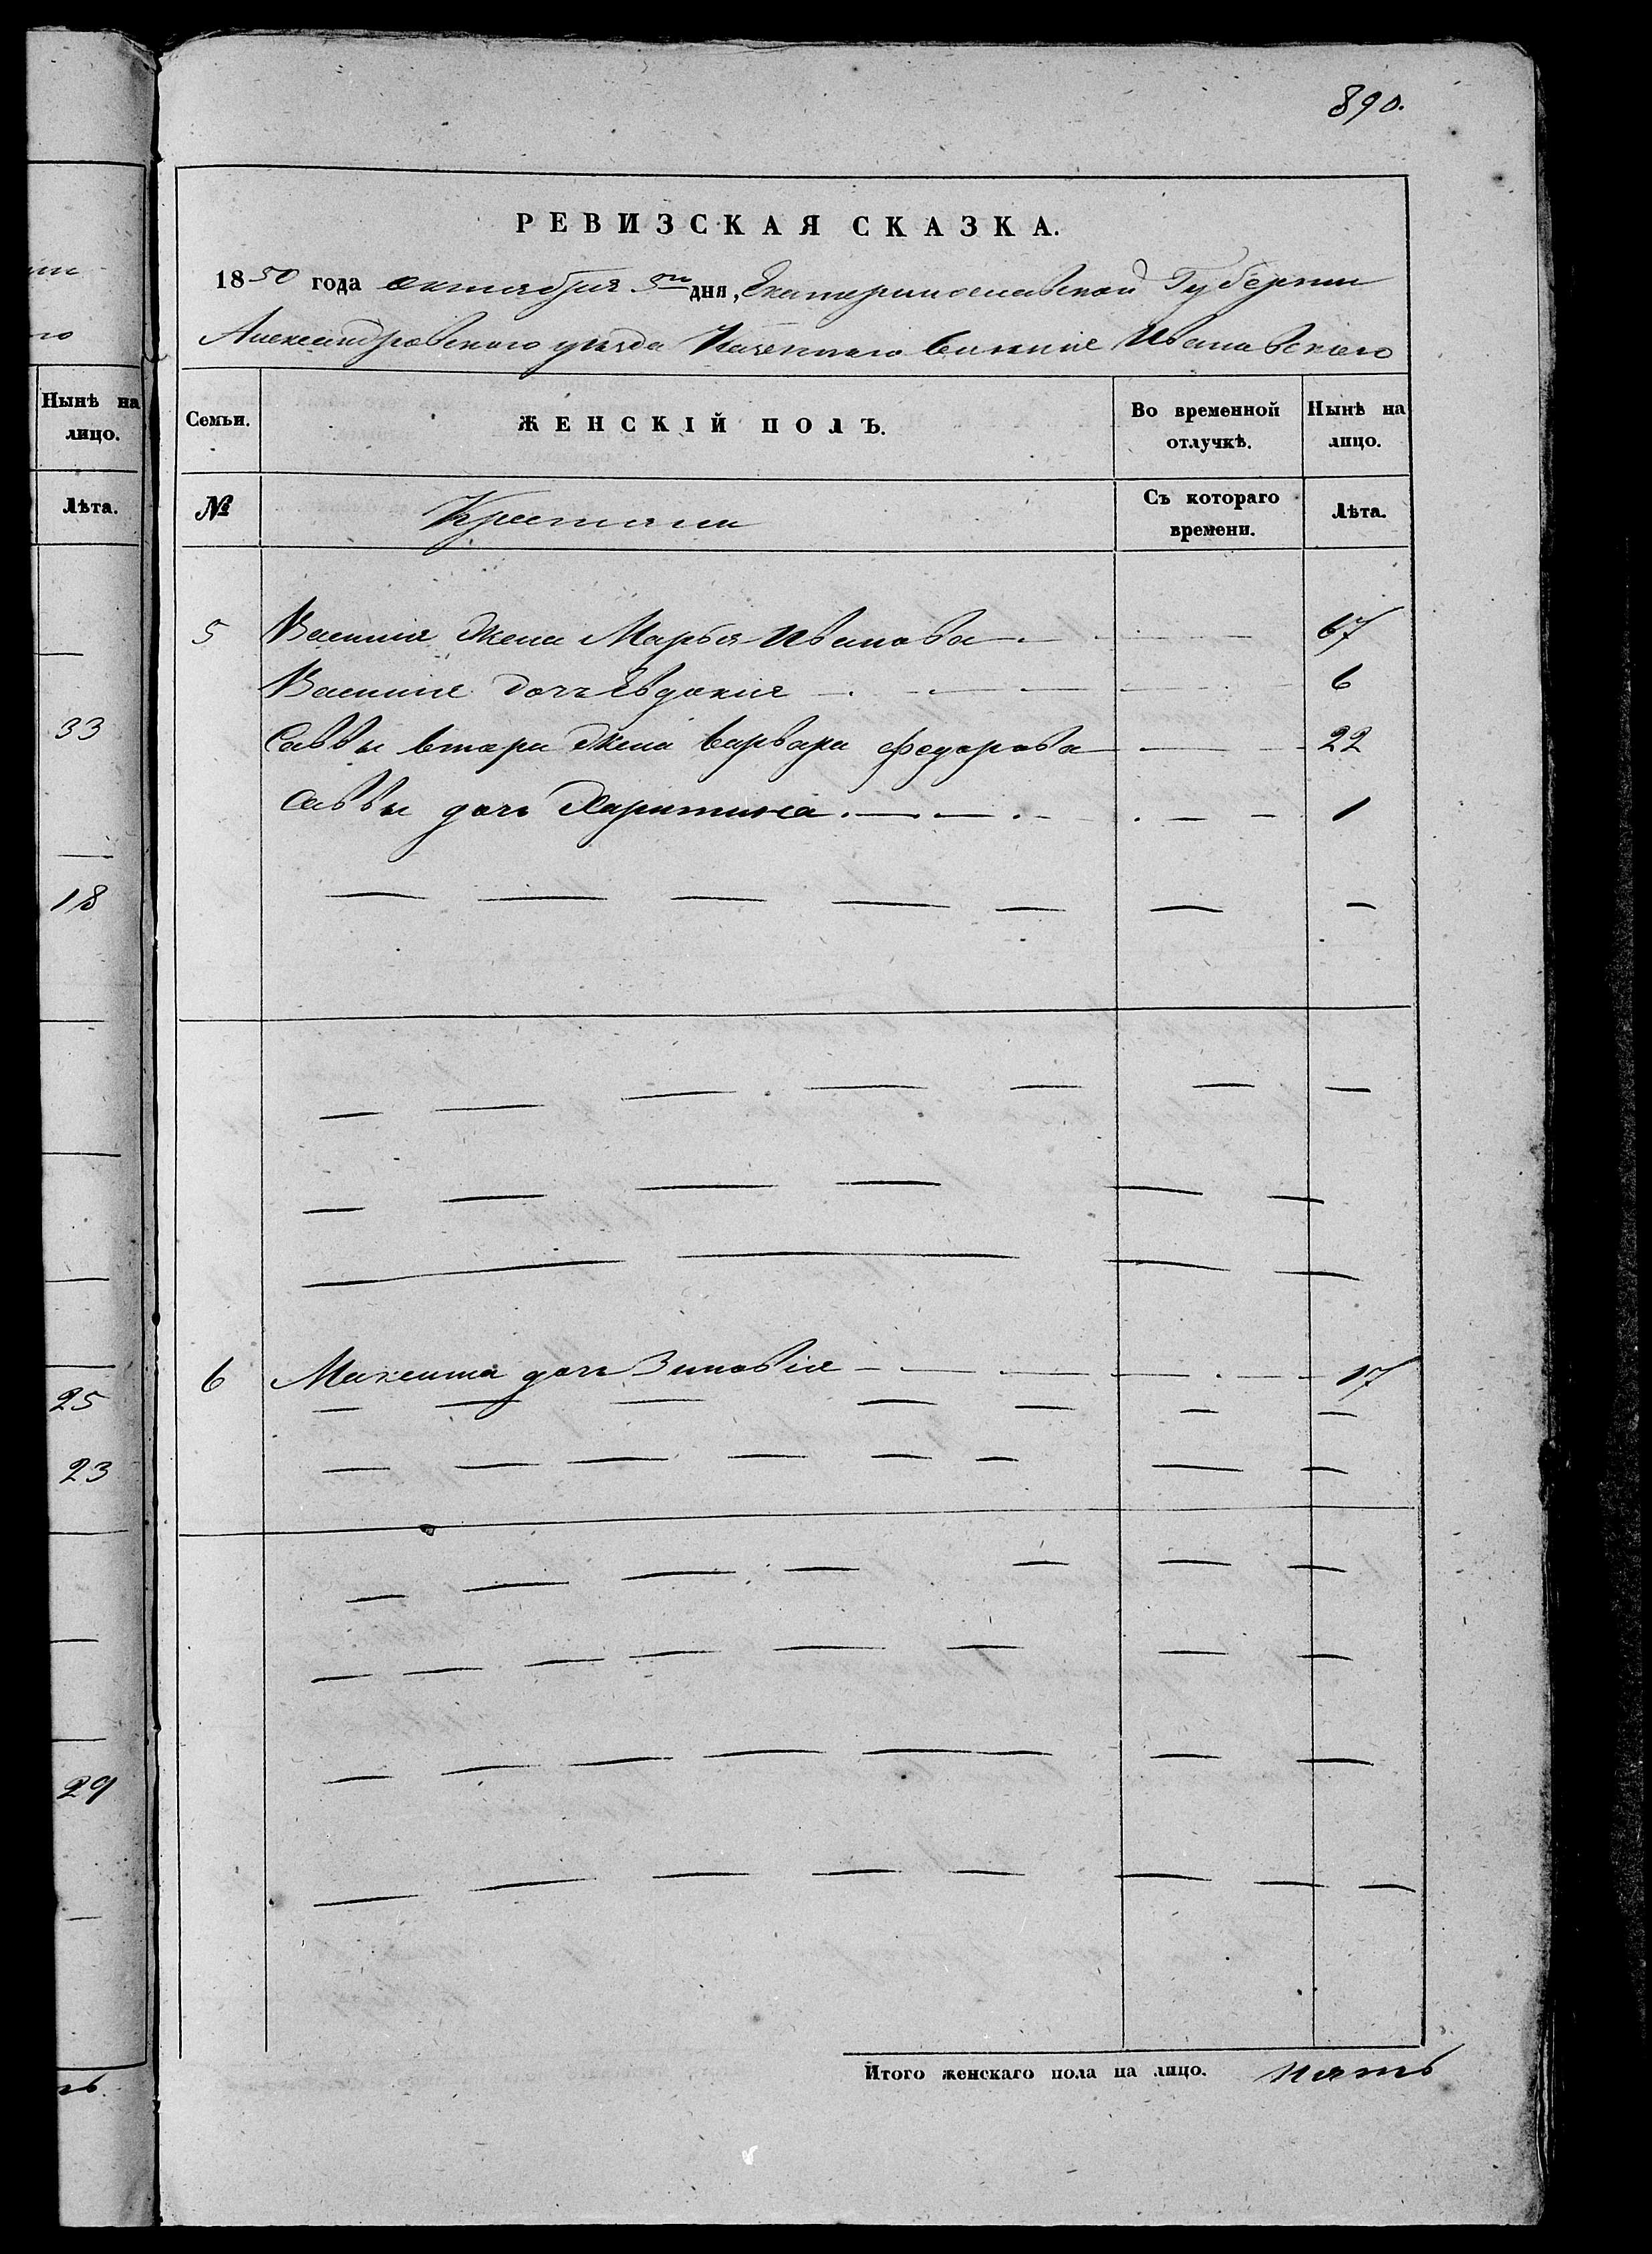 890.
РЕВИЗСКАЯ СКАЗКА.
1850 года октября 5го дня, Екатеринославской Губерніи
Александровского уезда Казенного Ивановского
Нынѣ на лицо.
Семьи.
ЖЕНСКІЙ ПОЛЪ.
Во временной отлучкѣ.
Нынѣ на лицо.
Лѣта.
№
Крестяни
Съ котораго времени.
Лѣта.
5 Василия жена Марья Иванова 67
Василие дочь Евдокия 6
33
Саввы втора жена варвара федорова 22
Саввы дочь Харитина 1
18
6 Максима дочь Зиновія 17
25
23
29
Итого женскаго пола на лицо. пять